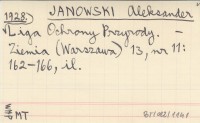 1928. JANOWSKI Aleksander
Liga Ochrony Przyrody. -
Ziemia (Warszawa) 13, nr 11:
162-166, il.
MT